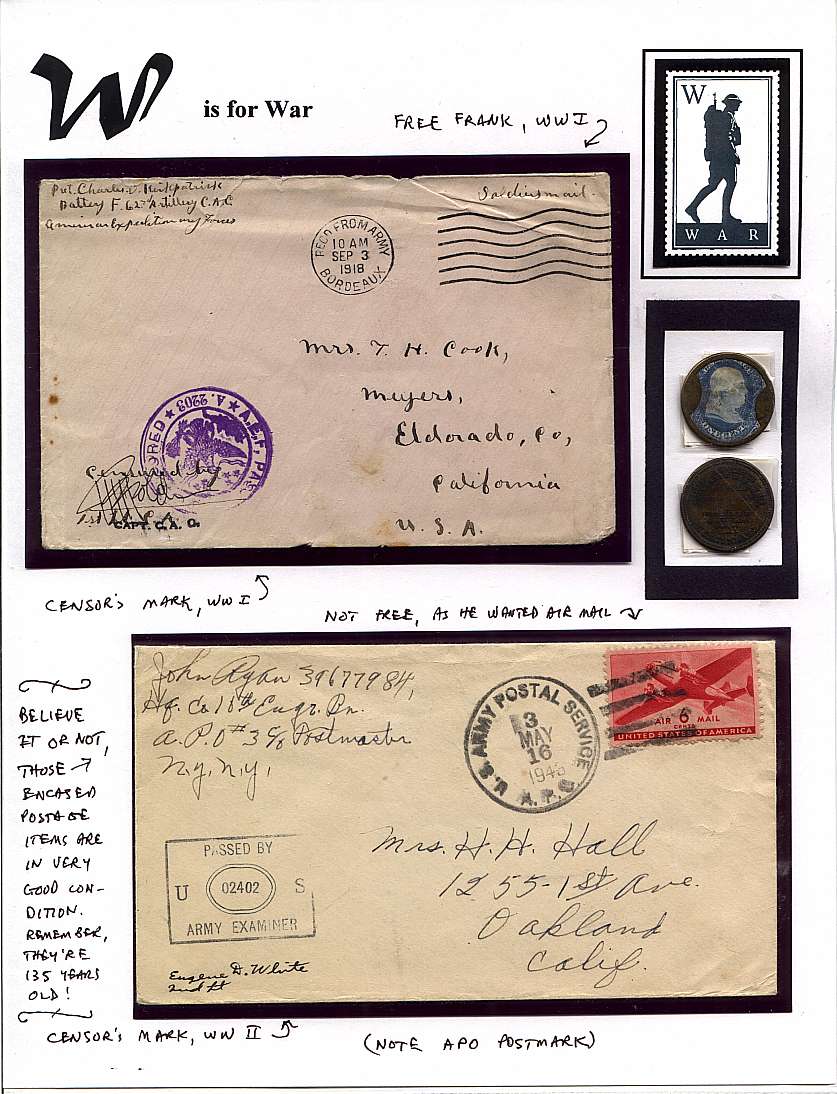 W is for War
FREE FRANK, WWI
W
WAR
Pvt. Charles J. Kirkpatrick
Battery F. 62nd Artillery C.A.C
American Expeditionary Forces
Soldiers mail.
REC'D FROM ARMY
10 AM
SEP 3
1918
BORDEAUX
Mrs. T. H. Cook,
Meyers,
Eldorado, Co,
California
U. S. A.
A.E.F. PAS
ORED ★ A. 2203 ★
Censored by
CAPT. C. A. C.
CENSOR'S MARK, WWI
NOT FREE, AS HE WANTED AIR MAIL
John Ryan 39677984,
Hq. Co 10th Engr. Bn.
A.P.O # 3 c/o Postmaster
N.Y. N.Y.
U.S. ARMY POSTAL SERVICE
3
MAY
16
1943
A.P.O
AIR 6 MAIL
CENTS
UNITED STATES OF AMERICA
Mrs. H. H. Hall
1255-1st Ave.
Oakland
Calif.
PASSED BY
U 02402 S
ARMY EXAMINER
Eugene D. White
2nd Lt
BELIEVE
IT OR NOT,
THOSE
ENCASED
POSTAGE
ITEMS ARE
IN VERY
GOOD CON-
DITION.
REMEMBER,
THEY'RE
135 YEARS
OLD!
CENSOR'S MARK, WW II
(NOTE APO POSTMARK)